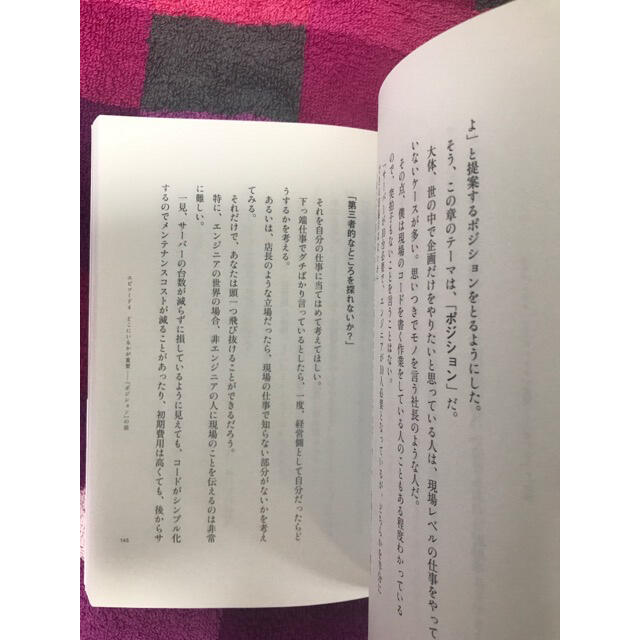 よ」と提案するポジションをとるようにした。
そう、この章のテーマは、「ポジション」だ。
大体、世の中で企画だけをやりたいと思っている人は、現場レベルの仕事をやって
いないケースが多い。思いつきでモノを言う社長のような人だ。
その点、僕は現場のコードを書く作業をしている人のこともある程度わかっている
ので、突拍子もないことを言うことはない。
「第三者的なところを探れないか?」
それを自分の仕事に当てはめて考えてほしい。
下っ端仕事でグチばかり言っているとしたら、一度、経営側として自分だったらど
うするかを考える。
あるいは、店長のような立場だったら、現場の仕事で知らない部分がないかを考え
てみる。
それだけで、あなたは頭一つ飛び抜けることができるだろう。
特に、エンジニアの世界の場合、非エンジニアの人に現場のことを伝えるのは非常
に難しい。
一見、サーバーの台数が減らずに損しているように見えても、コードがシンプル化
するのでメンテナンスコストが減ることがあったり、初期費用は高くても、後からサ
どこにいるかが重要――「ポジション」の話
145